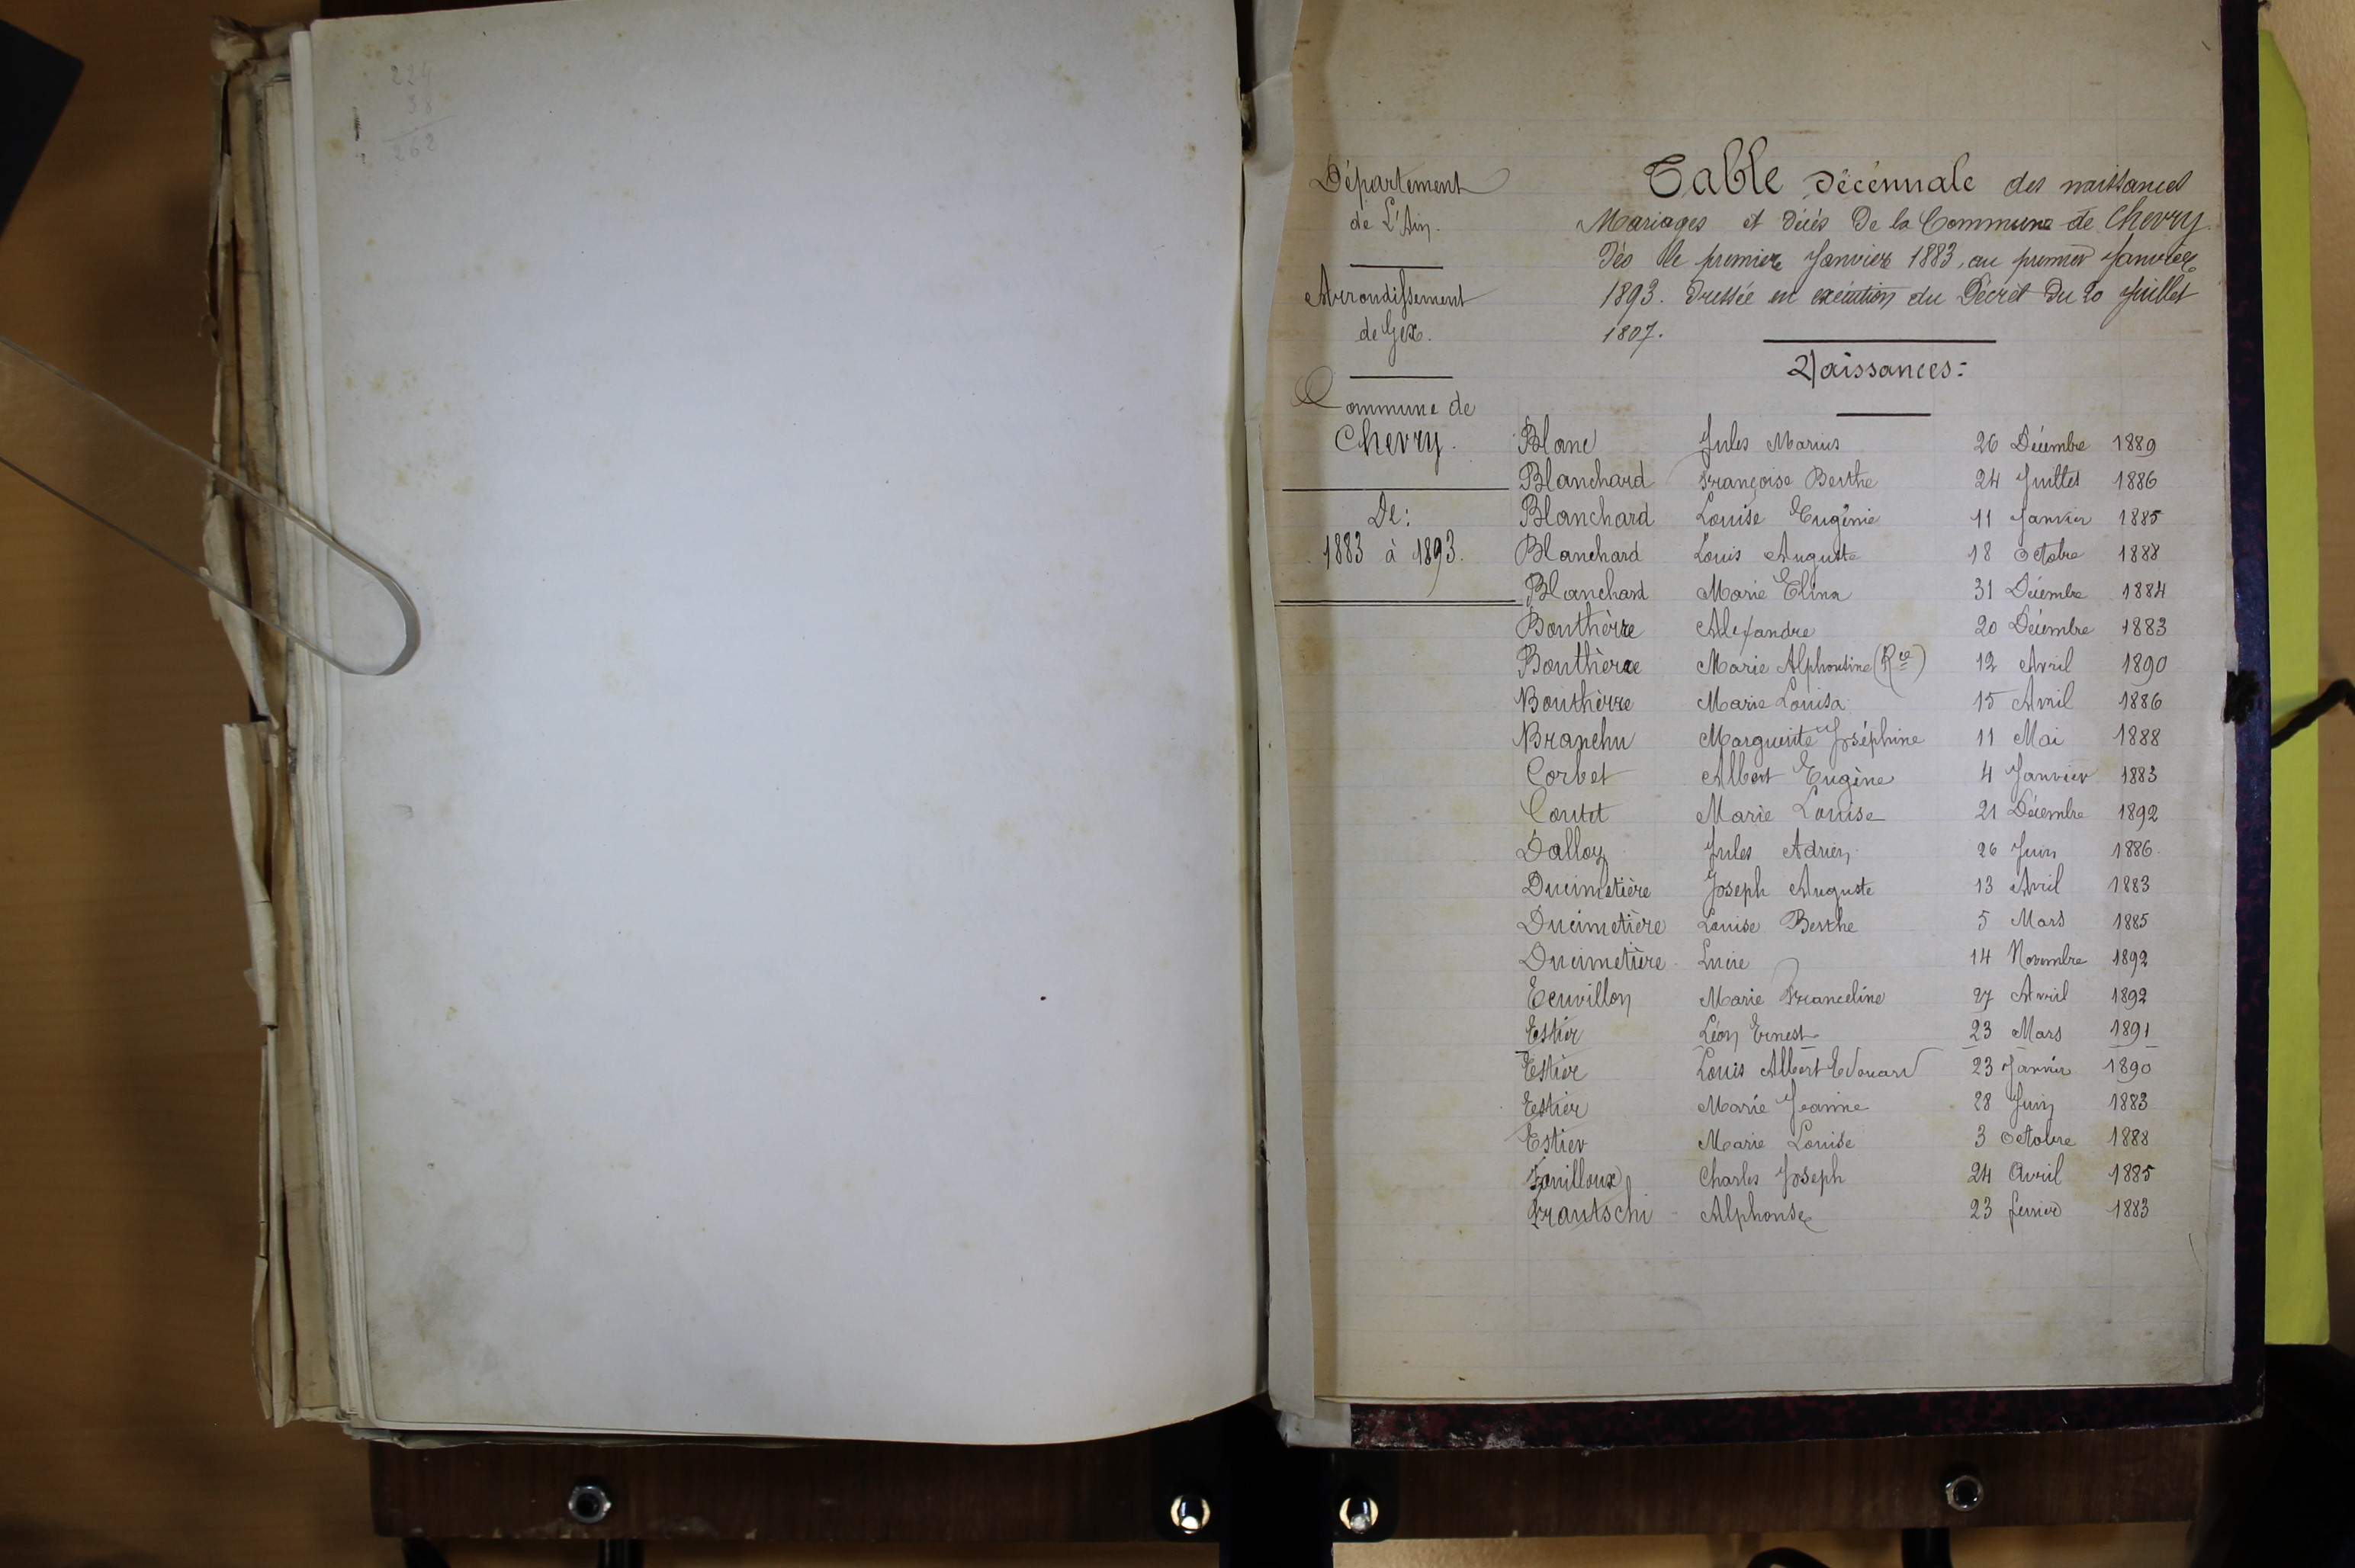 224
38
262
Département
de L'Ain.
Arrondissement
de Gex.
Commune de
Chevry.
De:
1883 à 1893.
Table décennale des naissances
Mariages et décès de la Commune de Chevry
Dès le premier Janvier 1883, au premier Janvier
1893. Dressée en exécution du Décret du 20 Juillet
1807.
Naissances:
Blanc Jules Marius 26 Décembre 1889
Blanchard Françoise Berthe 24 Juillet 1886
Blanchard Louise Eugénie 11 Janvier 1885
Blanchard Louis Auguste 18 Octobre 1888
Blanchard Marie Elina 31 Décembre 1884
Bouthèrre Alexandre 20 Décembre 1883
Bouthèrre Marie Alphonsine (Rce) 12 Avril 1890
Bouthèrre Marie Louisa 15 Avril 1886
Branchu Marguerite Joséphine 11 Mai 1888
Corbet Albert Eugène 4 Janvier 1883
Coutet Marie Louise 21 Décembre 1892
Dalloz Jules Adrien 26 Juin 1886
Ducimetière Joseph Auguste 13 Avril 1883
Ducimetière Louise Berthe 5 Mars 1885
Ducimetière Lucie 14 Novembre 1892
Ecuvillon Marie Franceline 27 Avril 1892
Estier Léon Ernest 23 Mars 1891
Estier Louis Albert Edouard 23 Janvier 1890
Estier Marie Jeanne 28 Juin 1883
Estier Marie Louise 3 Octobre 1888
Fouilloux Charles Joseph 24 Avril 1885
Frautschi Alphonse 23 février 1883